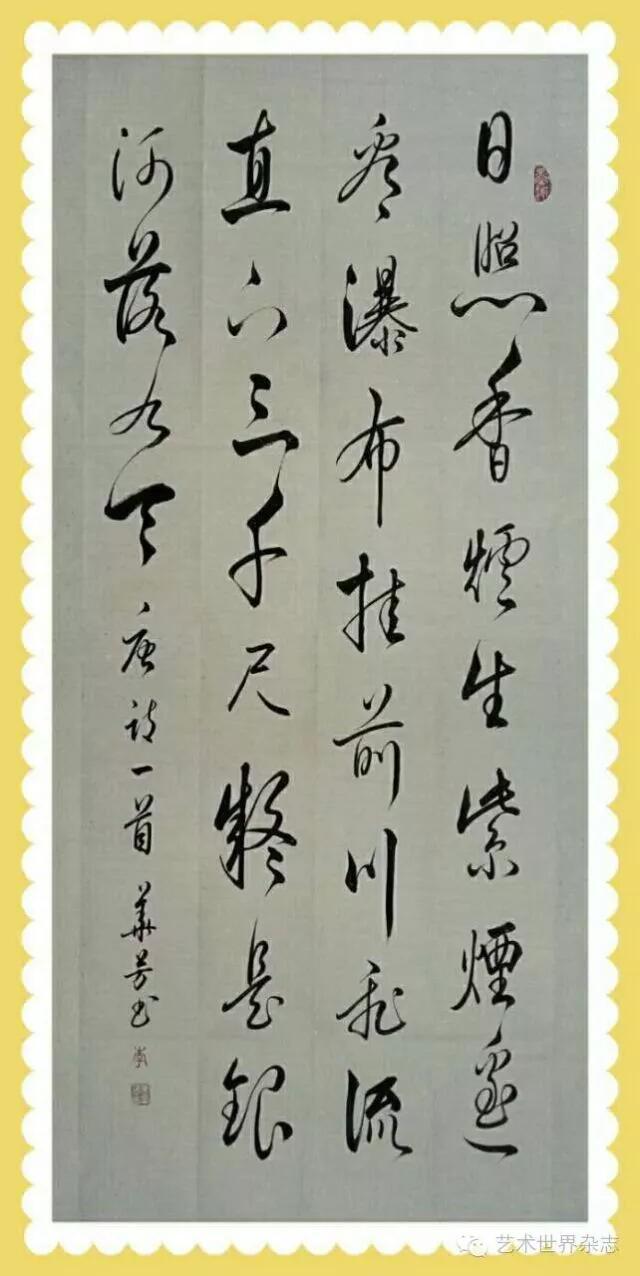 日照香爐生紫煙遙
看瀑布挂前川飛流
直下三千尺疑是銀
河落九天 唐詩一首 華芳书
艺术世界杂志